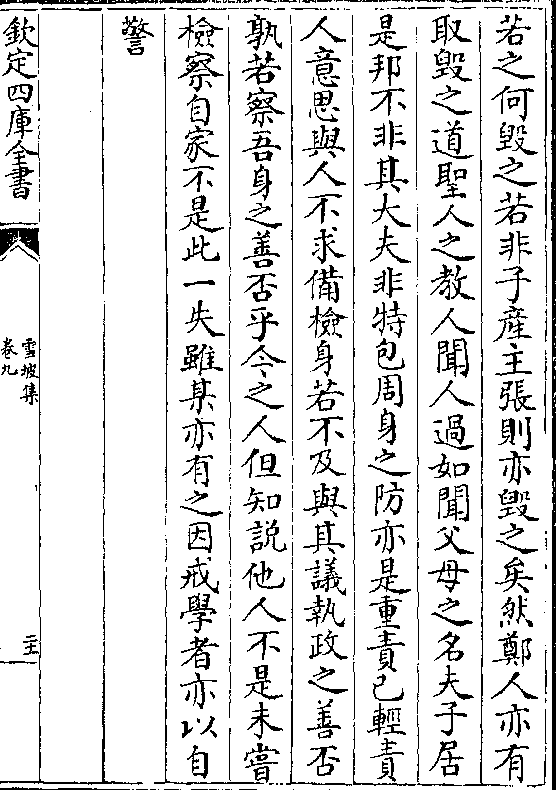 若之何毀之若非子產主張則亦毀之矣然鄭人亦有
取毀之道聖人之教人聞人過如聞父母之名夫子居
是邦不非其大夫非特包周身之防亦是重責己輕責
人意思與人不求備檢身若不及與其議執政之善否
孰若察吾身之善否乎今之人但知說他人不是未嘗
檢察自家不是此一失雖某亦有之因戒學者亦以自
警
欽定四庫全書
雪坡集
卷九